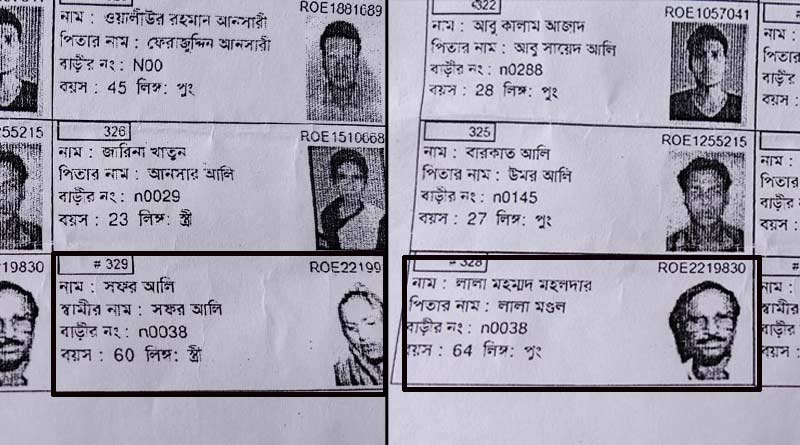 ROE1881689
নাম : ওয়ালীউর রহমান আনসারী
পিতার নাম : ফেরাজুদ্দিন আনসারী
বাড়ীর নং : N00
বয়স : 45 লিঙ্গ: পুং
255215
326
ROE1510668
নাম : জারিনা খাতুন
পিতার নাম : আনসার আলি
বাড়ীর নং : n0029
বয়স : 23 লিঙ্গ: স্ত্রী
219830
# 329
ROE22199
নাম : সফর আলি
স্বামীর নাম : সফর আলি
বাড়ীর নং : n0038
বয়স : 60 লিঙ্গ: স্ত্রী
322
ROE1057041
নাম : আবু কালাম আজাদ
পিতার নাম : আবু সায়েদ আলি
বাড়ীর নং : n0288
বয়স : 28 লিঙ্গ: পুং
নাম :
পিতার
বাড়ীর
বয়স :
325
ROE1255215
নাম : বারকাত আলি
পিতার নাম : উমর আলি
বাড়ীর নং : n0145
বয়স : 27 লিঙ্গ: পুং
নাম :
পিতার
বাড়ীর
বয়স :
# 328
ROE2219830
নাম : লালা মহম্মদ মহলদার
পিতার নাম : লালা মণ্ডল
বাড়ীর নং : n0038
বয়স : 64 লিঙ্গ: পুং
নাম :
স্বামীর
বাড়ীর
বয়স :